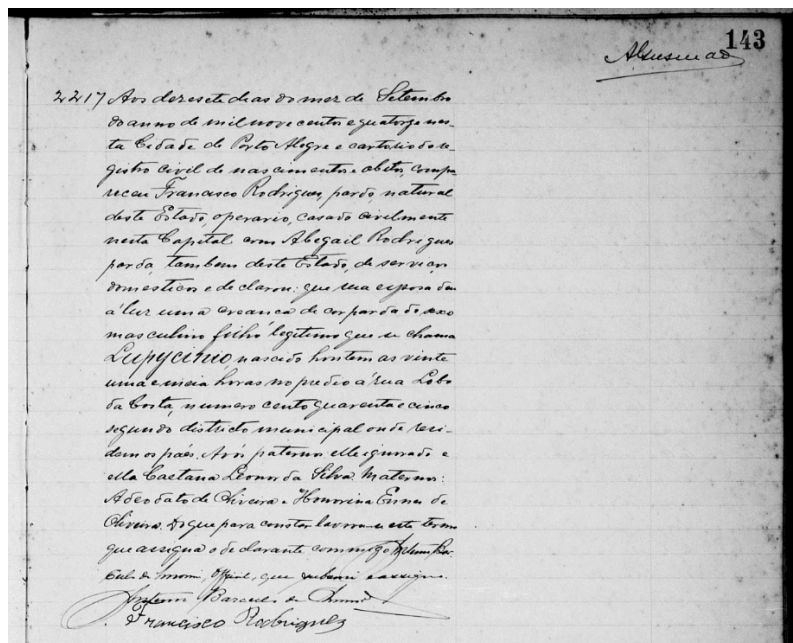 143
2217 Aos dezesete dias do mez de Setembro
do anno de mil nove centos e quatorze nes-
ta Cidade de Porto Alegre e cartorio do re-
gistro civil de nascimentos e obitos, compa-
receu Francisco Rodrigues, pardo, natural
deste Estado, operario, casado civilmente
nesta Capital com Abegail Rodrigues
parda, tambem deste Estado, de serviços
domesticos e declarou: que sua esposa deu
á luz uma creança de cor parda do sexo
masculino filho legitimo que se chama
Lupycinio, nascido hontem as vinte
uma e meia horas no predio á rua Lobo
da Costa, numero cento quarenta e cinco
segundo districto municipal onde resi-
dem os paes. Avós paternos: elle ignorado e
ella Caetana Leonor da Silva. Maternos:
Adeodato de Oliveira e Honorina de
Oliveira. Do que para constar lavrou-se este termo
que assigna o declarante commigo
Official, que subscrevi e assigno.
Francisco Rodrigues